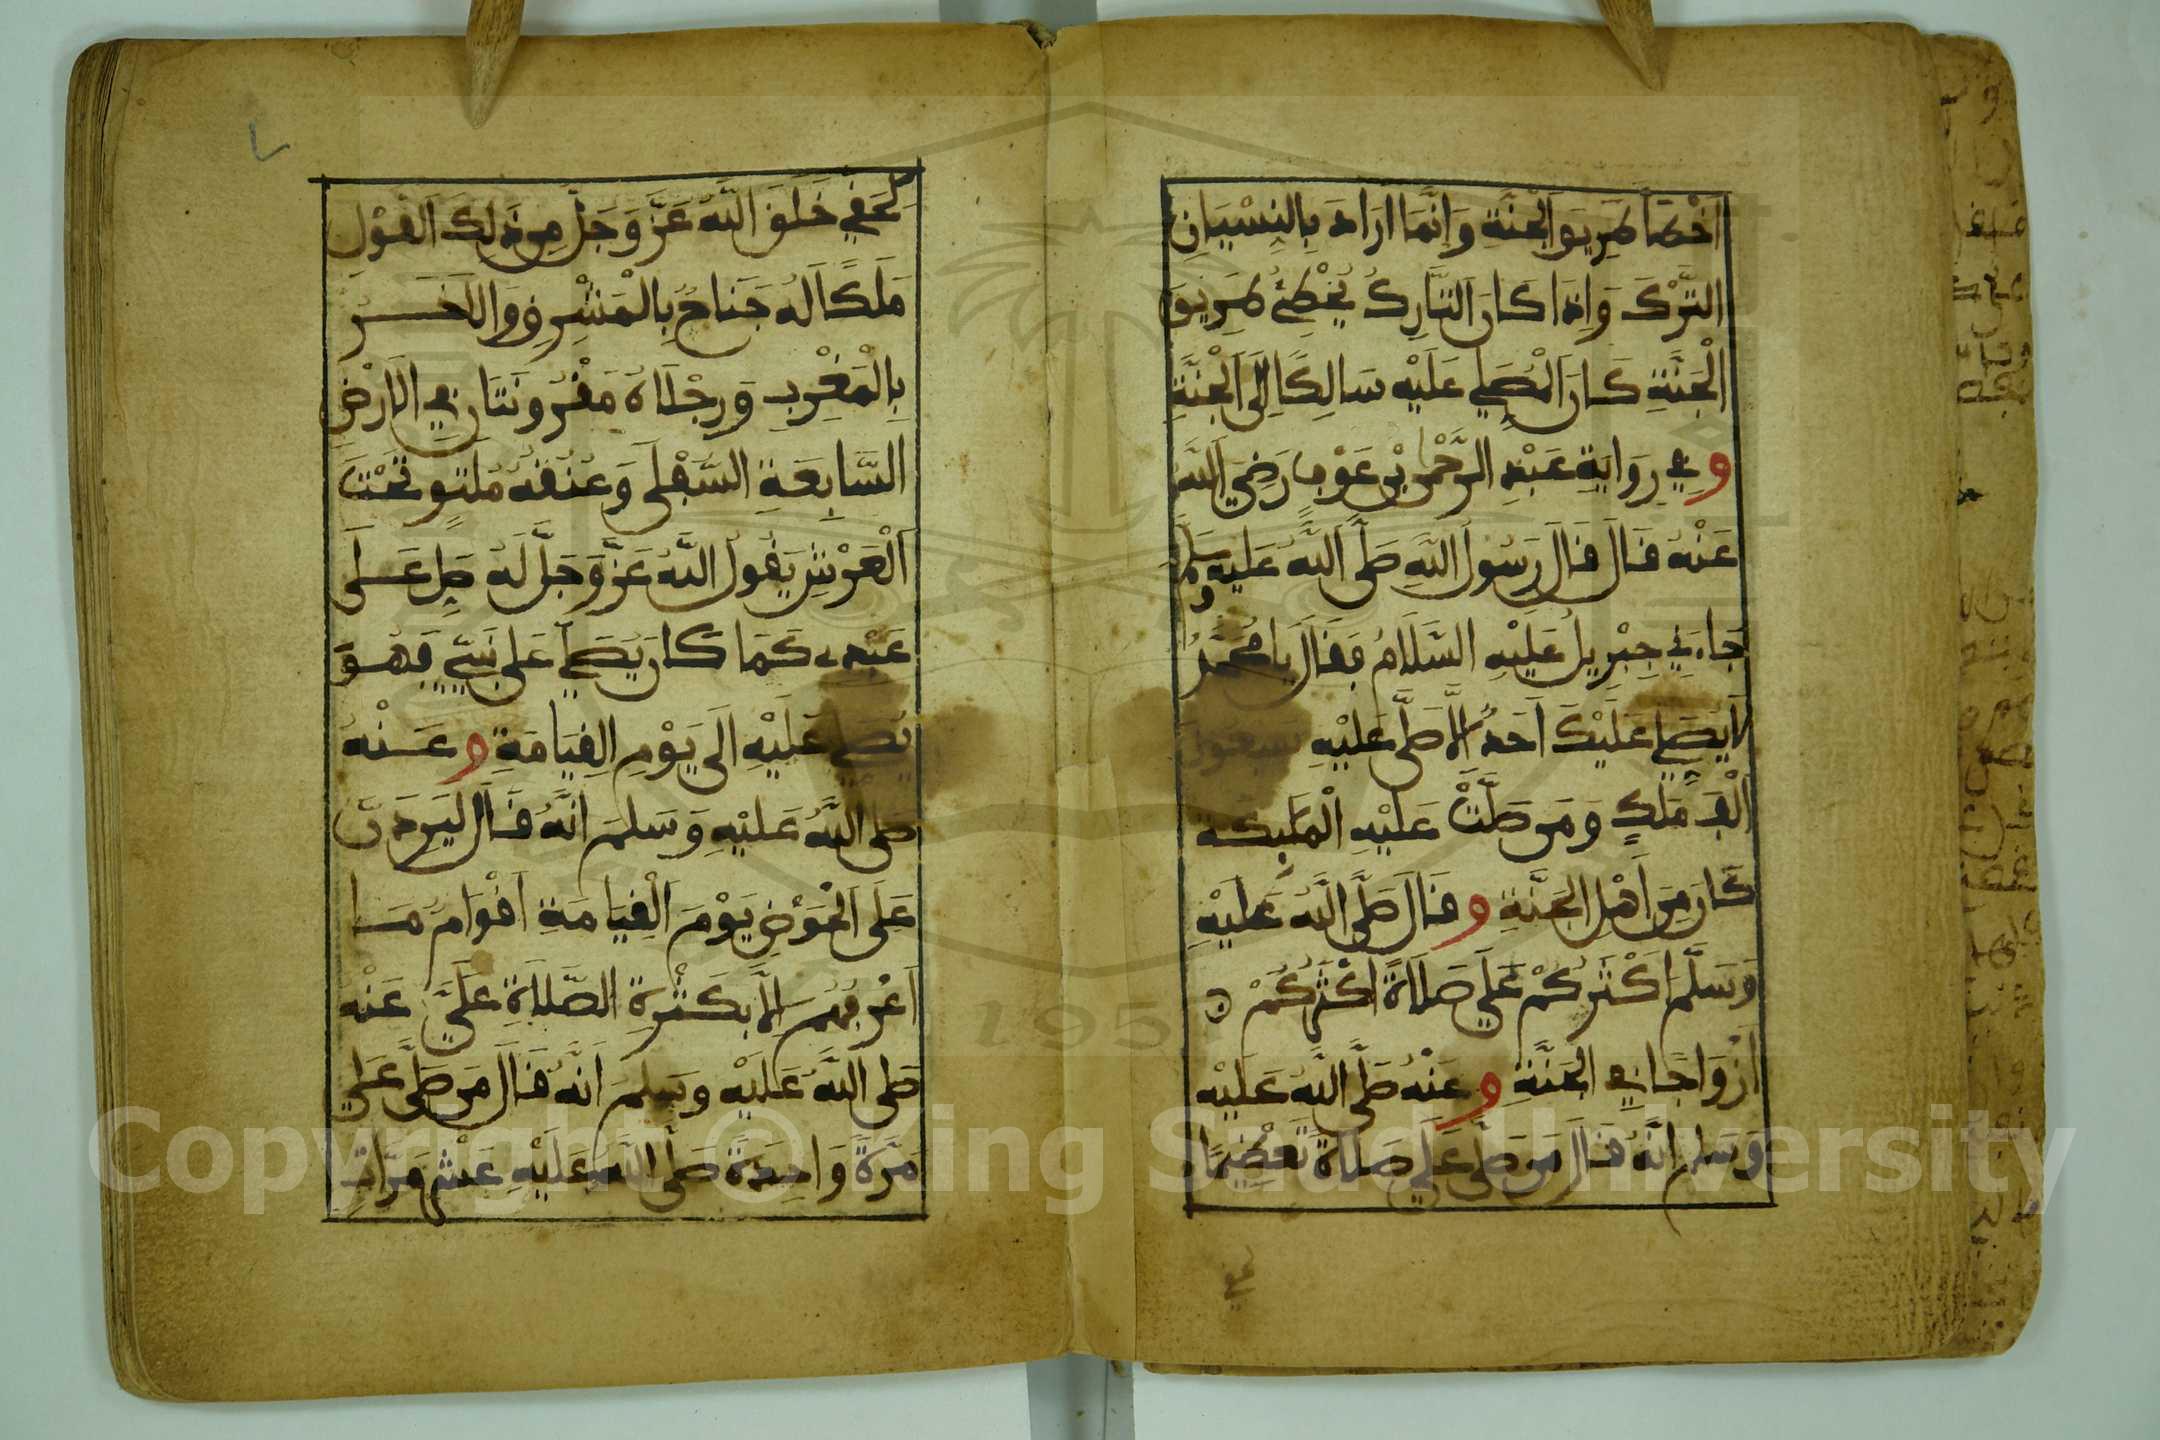 اَخْطَأَ طَرِيقَ الْجَنَّةِ وَاِنَّمَا اَرَادَ بِالنِّسْيَانِ
التَّرْكَ وَاِذَا كَانَ التَّارِكُ يُخْطِئُ طَرِيقَ
الْجَنَّةِ كَانَ الْمُصَلِّي عَلَيْهِ سَالِكًا اِلَى الْجَنَّةِ
وَفِي رِوَايَةِ عَبْدِ الرَّحْمٰنِ بْنِ عَوْفٍ رَضِيَ اللَّهُ
عَنْهُ قَالَ قَالَ رَسُولُ اللَّهِ صَلَّى اللَّهُ عَلَيْهِ وَسَلَّمَ
جَاءَنِي جِبْرِيلُ عَلَيْهِ السَّلَامُ فَقَالَ يَا مُحَمَّدُ
لَا يُصَلِّي عَلَيْكَ اَحَدٌ اِلَّا صَلَّى عَلَيْهِ سَبْعُونَ
اَلْفَ مَلَكٍ وَمَنْ صَلَّتْ عَلَيْهِ الْمَلَٰئِكَةُ
كَانَ مِنْ اَهْلِ الْجَنَّةِ وَقَالَ صَلَّى اللَّهُ عَلَيْهِ
وَسَلَّمَ اَكْثَرُكُمْ عَلَيَّ صَلَاةً اَكْثَرُكُمْ
اَزْوَاجًا فِي الْجَنَّةِ وَعَنْهُ صَلَّى اللَّهُ عَلَيْهِ
وَسَلَّمَ اَنَّهُ قَالَ مَنْ صَلَّى عَلَيَّ صَلَاةً تَعْظِيمًا
لِحَقِّي خَلَقَ اللَّهُ عَزَّ وَجَلَّ مِنْ ذَلِكَ الْقَوْلِ
مَلَكًا لَهُ جَنَاحٌ بِالْمَشْرِقِ وَالْاَخَرُ
بِالْمَغْرِبِ وَرِجْلَاهُ مَقْرُونَتَانِ فِي الْاَرْضِ
السَّابِعَةِ السُّفْلَى وَعُنُقُهُ مُلْتَوٍ تَحْتَ
الْعَرْشِ يَقُولُ اللَّهُ عَزَّ وَجَلَّ لَهُ صَلِّ عَلَى
عَبْدِي كَمَا كَانَ يُصَلِّي عَلَى نَبِيِّي فَهُوَ
يُصَلِّي عَلَيْهِ اِلَى يَوْمِ الْقِيَامَةِ وَعَنْهُ
صَلَّى اللَّهُ عَلَيْهِ وَسَلَّمَ اَنَّهُ قَالَ لَيَرِدَنَّ
عَلَى الْحَوْضِ يَوْمَ الْقِيَامَةِ اَقْوَامٌ مَا
اَعْرِفُهُمْ اِلَّا بِكَثْرَةِ الصَّلَاةِ عَلَيَّ وَعَنْهُ
صَلَّى اللَّهُ عَلَيْهِ وَسَلَّمَ اَنَّهُ قَالَ مَنْ صَلَّى عَلَيَّ
مَرَّةً وَاحِدَةً صَلَّى اللَّهُ عَلَيْهِ عَشْرَ مَرَّاتٍ
Copyright © King Saud University
1957